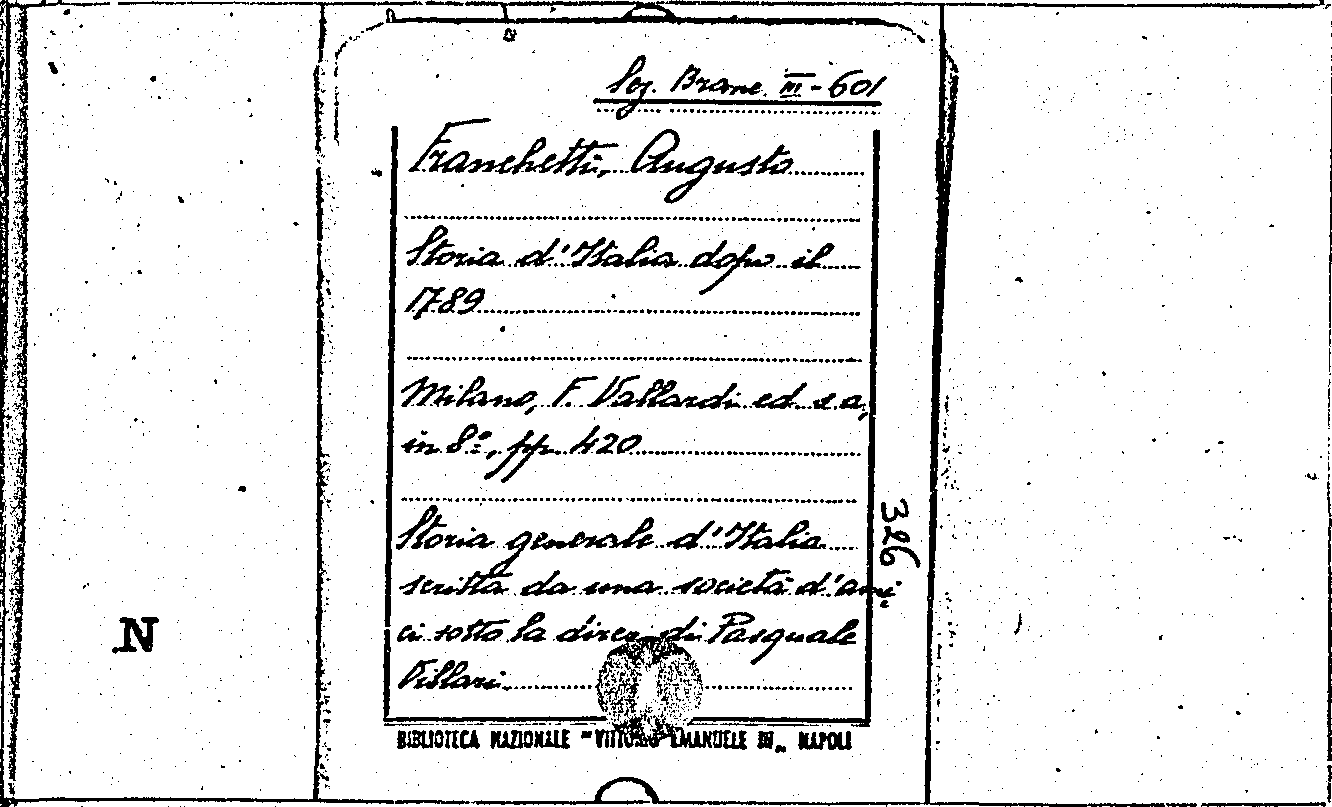 Leg. Branc. III - 601
Franchetti, Augusto
Storia d'Italia dopo il
1789
Milano, F. Vallardi ed. s. a,
in 8º, pp. 420
Storia generale d'Italia
scritta da una società d'ami
ci sotto la direz. di Pasquale
Villari.
326
N
BIBLIOTECA NAZIONALE "VITTORIO EMANUELE III„ NAPOLI